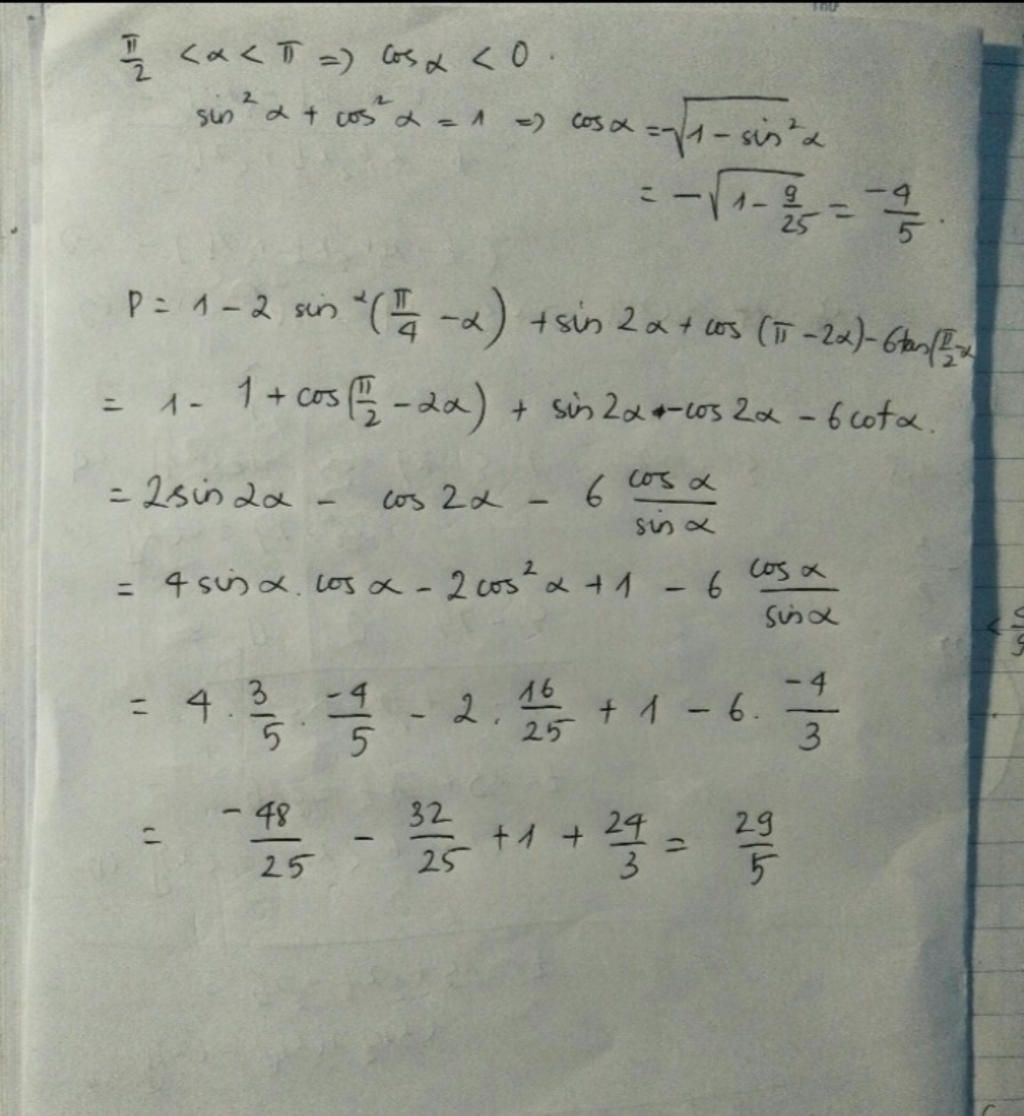 π/2 < α < π => cos α < 0.
sin² α + cos² α = 1 => cos α = -√(1 - sin² α)
= -√(1 - 9/25) = -4/5.
P = 1 - 2 sin²(π/4 - α) + sin 2α + cos (π - 2α) - 6tan(π/2 - α
= 1 - 1 + cos(π/2 - 2α) + sin 2α - cos 2α - 6 cot α.
= 2 sin 2α - cos 2α - 6 cos α/sin α
= 4 sin α. cos α - 2 cos² α + 1 - 6 cos α/sin α
= 4 . 3/5 . -4/5 - 2 . 16/25 + 1 - 6. -4/3
= -48/25 - 32/25 + 1 + 24/3 = 29/5